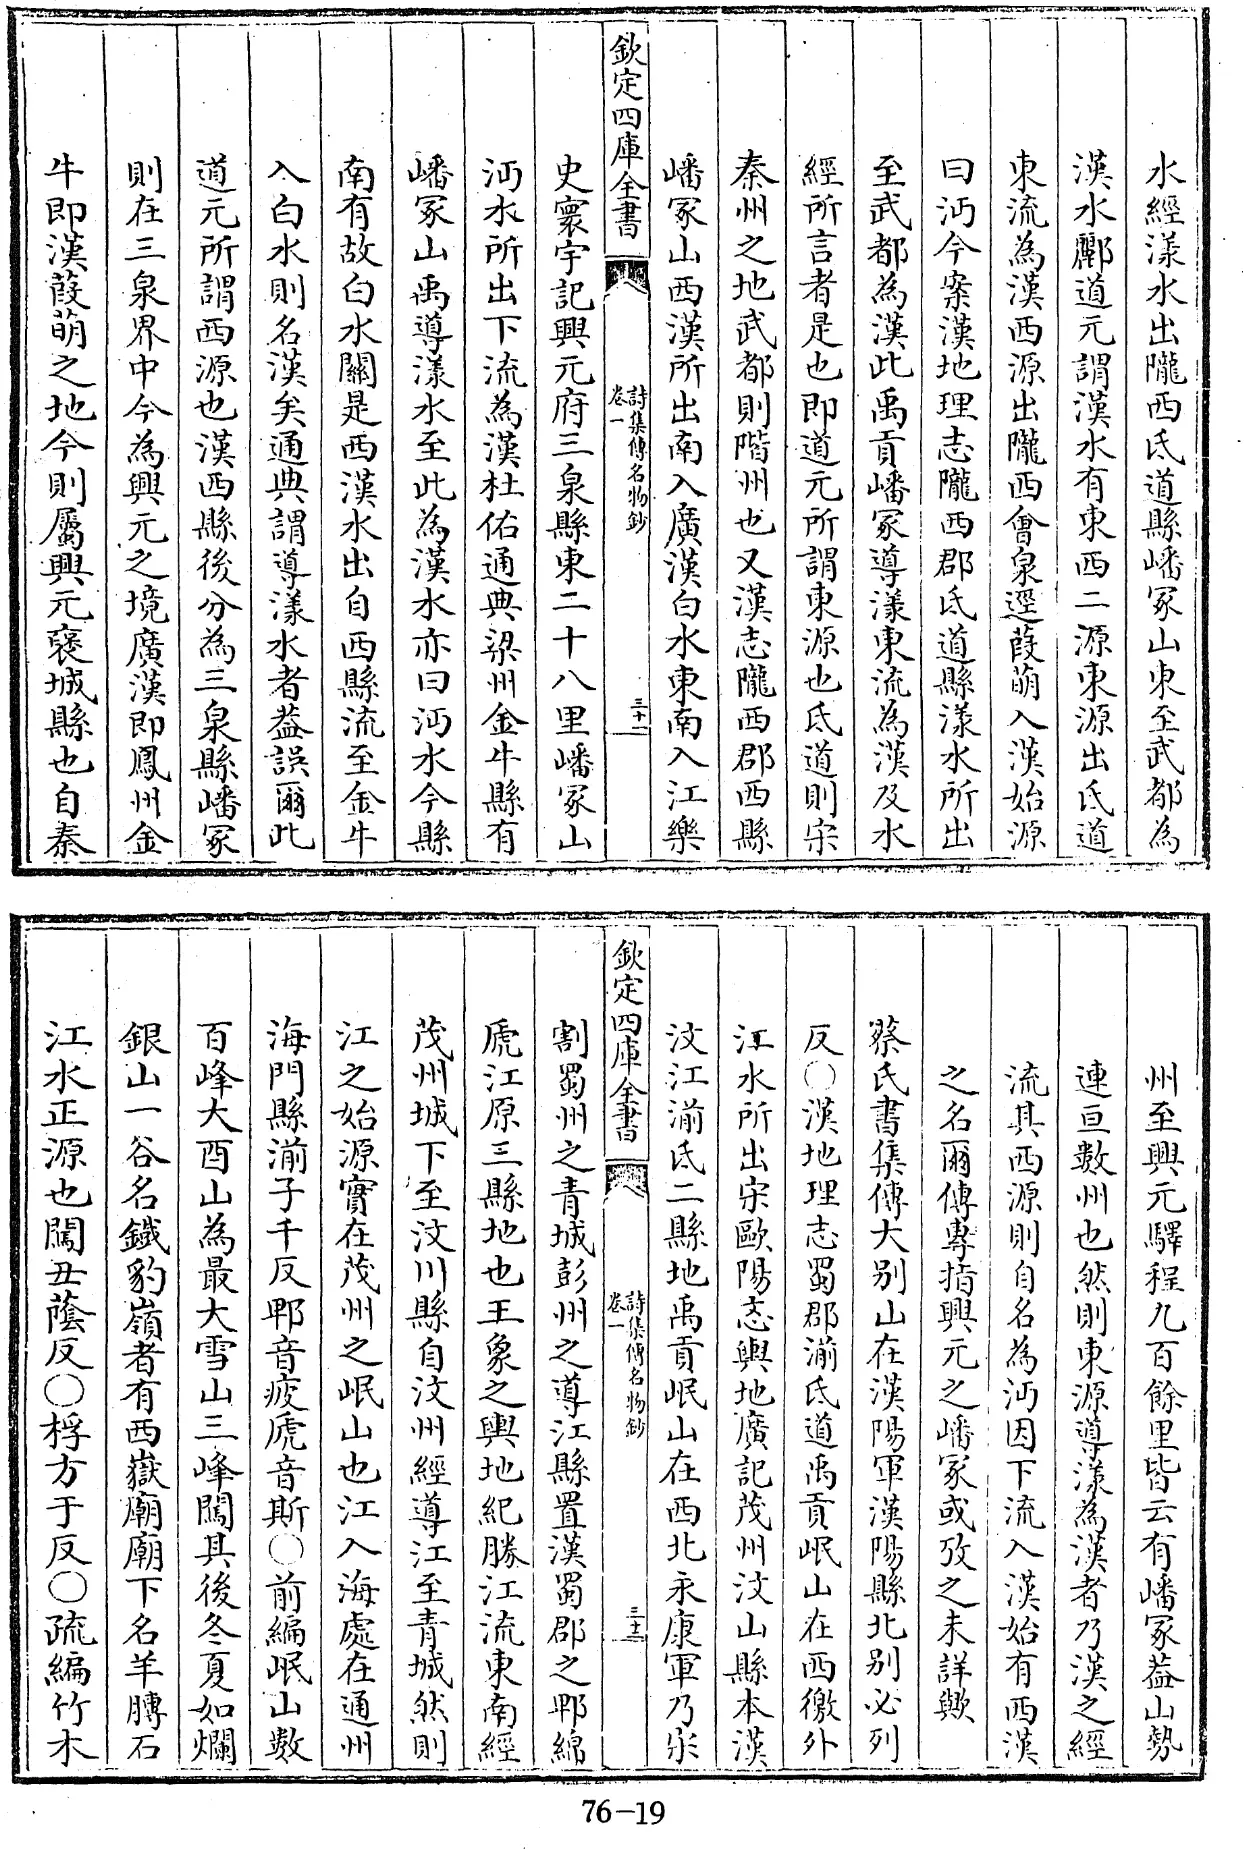 水經漾水出隴西氐道縣嶓冢山東至武都為
漢水酈道元謂漢水有東西二源東源出氐道
東流為漢西源出隴西會泉逕葭萌入漢始源
曰沔今案漢地理志隴西郡氐道縣漾水所出
至武都為漢此禹貢嶓冢導漾東流為漢及水
經所言者是也即道元所謂東源也氐道則宋
秦州之地武都則階州也又漢志隴西郡西縣
嶓冢山西漢所出南入廣漢白水東南入江樂
欽定四庫全書
詩集傳名物鈔
卷一
三十一
史寰宇記興元府三泉縣東二十八里嶓冢山
沔水所出下流為漢杜佑通典梁州金牛縣有
嶓冢山禹導漾水至此為漢水亦曰沔水今縣
南有故白水關是西漢水出自西縣流至金牛
入白水則名漢矣通典謂導漾水者葢誤爾此
道元所謂西源也漢西縣後分為三泉縣嶓冢
則在三泉界中今為興元之境廣漢即鳳州金
牛即漢葭萌之地今則屬興元褒城縣也自秦
州至興元驛程九百餘里皆云有嶓冢葢山勢
連亘數州也然則東源導漾為漢者乃漢之經
流其西源則自名為沔因下流入漢始有西漢
之名爾傳專指興元之嶓冢或攷之未詳歟
蔡氏書集傳大别山在漢陽軍漢陽縣北别必列
反○漢地理志蜀郡湔氐道禹貢岷山在西徼外
江水所出宋歐陽忞輿地廣記茂州汶山縣本漢
汶江湔氐二縣地禹貢岷山在西北永康軍乃宋
欽定四庫全書
詩集傳名物鈔
卷一
三十二
割蜀州之青城彭州之導江縣置漢蜀郡之郫綿
虒江原三縣地也王象之輿地紀勝江流東南經
茂州城下至汶川縣自汶州經導江至青城然則
江之始源實在茂州之岷山也江入海處在通州
海門縣湔子千反郫音疲虒音斯○前編岷山數
百峰大酉山為最大雪山三峰闖其後冬夏如爛
銀山一谷名鐵豹嶺者有西嶽廟廟下名羊膊石
江水正源也闖丑蔭反○桴方于反○疏編竹木
76-19